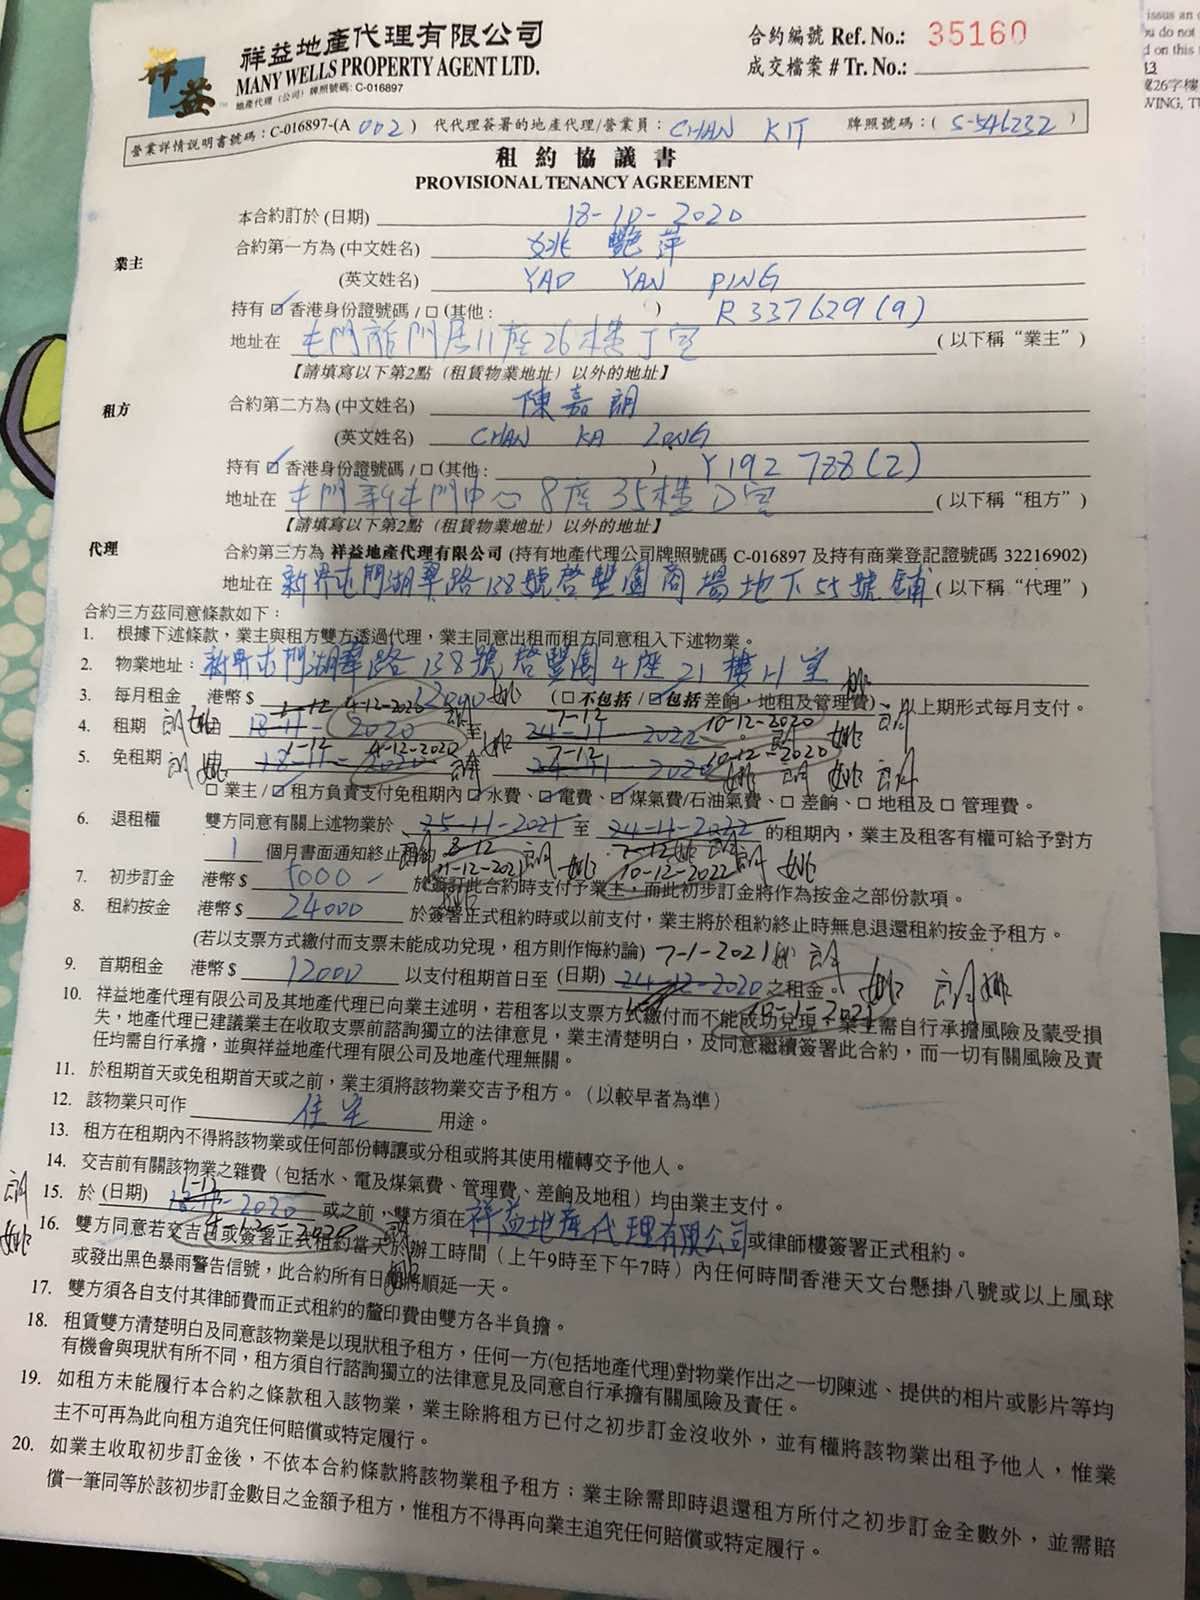 祥益地產代理有限公司
MANY WELLS PROPERTY AGENT LTD.
地產代理（公司）牌照號碼: C-016897
祥益
合約編號 Ref. No.: 35160
成交檔案 # Tr. No.:
營業詳情說明書號碼：C-016897-(A 002) 代代理簽署的地產代理/營業員：CHAN KIT 牌照號碼：( S-546232 )
租約協議書
PROVISIONAL TENANCY AGREEMENT
本合約訂於 (日期) 18-10-2020
業主
合約第一方為 (中文姓名) 姚艷萍
(英文姓名) YAO YAN PING
持有 ☑ 香港身份證號碼 / □ (其他: ) R337629(9)
地址在 屯門龍門居11座26樓丁室 ( 以下稱 “業主” )
【請填寫以下第2點 (租賃物業地址) 以外的地址】
租方
合約第二方為 (中文姓名) 陳嘉朗
(英文姓名) CHAN KA LONG
持有 ☑ 香港身份證號碼 / □ (其他: ) Y192788(2)
地址在 屯門新屯門中心8座35樓D室 ( 以下稱 “租方” )
【請填寫以下第2點 (租賃物業地址) 以外的地址】
代理
合約第三方為 祥益地產代理有限公司 (持有地產代理公司牌照號碼 C-016897 及持有商業登記證號碼 32216902)
地址在 新界屯門湖翠路138號啓豐園商場地下55號舖 ( 以下稱 “代理” )
合約三方茲同意條款如下：
1. 根據下述條款，業主與租方雙方透過代理，業主同意出租而租方同意租入下述物業。
2. 物業地址：新界屯門湖翠路138號啓豐園4座21樓H室
3. 每月租金 港幣 $ (□ 不包括 / ☑ 包括 差餉，地租及管理費) 以上期形式每月支付。
1-12 4-12-2020 7-12 10-12-2020
4. 租期 由 18-11-2020 至 24-11-2022
1-12 4-12-2020 7-12 10-12-2020
5. 免租期 由 18-11-2020 24-11-2020
□ 業主 / ☑ 租方負責支付免租期內 ☑ 水費、☑ 電費、☑ 煤氣費/石油氣費、□ 差餉、□ 地租及 □ 管理費。
6. 退租權 雙方同意有關上述物業於 25-11-2021 至 24-11-2022 的租期內，業主及租客有權可給予對方
1 個月書面通知終止租約 8-12 11-12-2021 7-12 10-12-2022
7. 初步訂金 港幣 $ 5000 於簽訂此合約時支付予業主，而此初步訂金將作為按金之部份款項。
8. 租約按金 港幣 $ 24000 於簽署正式租約時或以前支付，業主將於租約終止時無息退還租約按金予租方。
(若以支票方式繳付而支票未能成功兌現，租方則作悔約論) 7-1-2021
9. 首期租金 港幣 $ 12000 以支付租期首日至 (日期) 24-12-2020 之租金。
10. 祥益地產代理有限公司及其地產代理已向業主述明，若租客以支票方式繳付而不能成功兌現，業主需自行承擔風險及蒙受損
失，地產代理已建議業主在收取支票前諮詢獨立的法律意見，業主清楚明白，及同意繼續簽署此合約，而一切有關風險及責
任均需自行承擔，並與祥益地產代理有限公司及地產代理無關。
11. 於租期首天或免租期首天或之前，業主須將該物業交吉予租方。（以較早者為準）
12. 該物業只可作 住宅 用途。
13. 租方在租期內不得將該物業或任何部份轉讓或分租或將其使用權轉交予他人。
14. 交吉前有關該物業之雜費（包括水、電及煤氣費、管理費、差餉及地租）均由業主支付。
1-12
15. 於 (日期) 18-11-2020 或之前，雙方須在祥益地產代理有限公司或律師樓簽署正式租約。
4-12-2020
16. 雙方同意若交吉日或簽署正式租約當天於辦工時間（上午9時至下午7時）內任何時間香港天文台懸掛八號或以上風球
或發出黑色暴雨警告信號，此合約所有日期將順延一天。
17. 雙方須各自支付其律師費而正式租約的釐印費由雙方各半負擔。
18. 租賃雙方清楚明白及同意該物業是以現狀租予租方，任何一方(包括地產代理)對物業作出之一切陳述、提供的相片或影片等均
有機會與現狀有所不同，租方須自行諮詢獨立的法律意見及同意自行承擔有關風險及責任。
19. 如租方未能履行本合約之條款租入該物業，業主除將租方已付之初步訂金沒收外，並有權將該物業出租予他人，惟業
主不可再為此向租方追究任何賠償或特定履行。
20. 如業主收取初步訂金後，不依本合約條款將該物業租予租方；業主除需即時退還租方所付之初步訂金全數外，並需賠
償一筆同等於該初步訂金數目之金額予租方，惟租方不得再向業主追究任何賠償或特定履行。